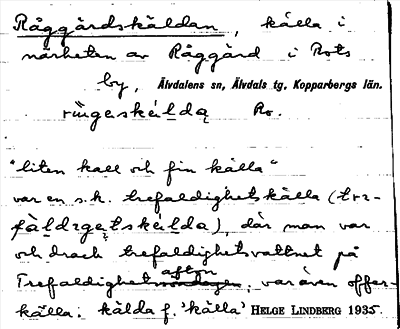 Råggårdskäldan, källa i
närheten av Råggård i Rots
by, Älvdalens sn, Älvdals tg, Kopparbergs län.
Ro.
"liten kall och fin källa"
var en s.k. trefaldighetskälla (tre-
där man var
och drack trefaldighetsvattnet på
Trefaldighetsafton, var även offer-
källa. kälda f. 'källa' HELGE LINDBERG 1935.